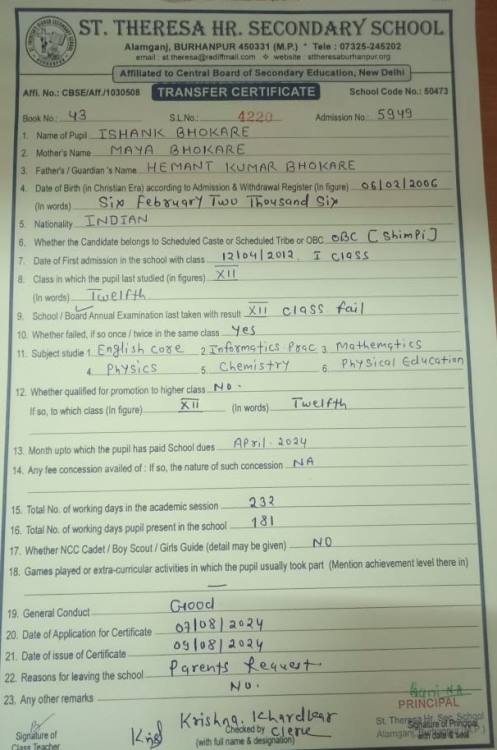 ST. THERESA HR. SECONDARY SCHOOL
Alamganj, BURHANPUR 450331 (M.P.) * Tele : 07325-245202
email : st.theresa@rediffmail.com ❖ website : sttheresaburhanpur.org
Affiliated to Central Board of Secondary Education, New Delhi
Affi. No.: CBSE/Aff./1030508 TRANSFER CERTIFICATE School Code No.: 50473
Book No.: 43 S.L.No.: 4220 Admission No.: 5949
1. Name of Pupil ISHANK BHOKARE
2. Mother's Name MAYA BHOKARE
3. Father's / Guardian 's Name HEMANT KUMAR BHOKARE
4. Date of Birth (in Christian Era) according to Admission & Withdrawal Register (in figure) 06/02/2006
(In words) Six February Two Thousand Six
5. Nationality INDIAN
6. Whether the Candidate belongs to Scheduled Caste or Scheduled Tribe or OBC OBC [Shimpi]
7. Date of First admission in the school with class 12/04/2012 I class
8. Class in which the pupil last studied (in figures) XII
(In words) Twelfth
9. School / Board Annual Examination last taken with result XII class fail
10. Whether failed, if so once / twice in the same class Yes
11. Subject studie 1. English core 2 Informatics Prac 3 Mathematics
4. Physics 5. Chemistry 6. Physical Education
12. Whether qualified for promotion to higher class No.
If so, to which class (In figure) XII (In words) Twelfth
13. Month upto which the pupil has paid School dues April-2024
14. Any fee concession availed of : If so, the nature of such concession NA
15. Total No. of working days in the academic session 232
16. Total No. of working days pupil present in the school 181
17. Whether NCC Cadet / Boy Scout / Girls Guide (detail may be given) NO
18. Games played or extra-curricular activities in which the pupil usually took part (Mention achievement level there in)
—
19. General Conduct Good
20. Date of Application for Certificate 07/08/2024
21. Date of issue of Certificate 09/08/2024
22. Reasons for leaving the school Parents Request
23. Any other remarks No.
PRINCIPAL
Krishna Khardkar
St. Theresa Hr. Sec. School
Signature of Principal
Signature of Checked by Clerk Alamganj, with date & seal
Class Teacher (with full name & designation)